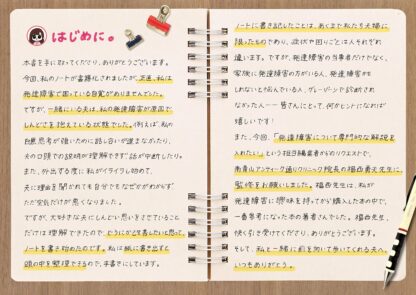 はじめに。
本書を手に取ってくださり、ありがとうございます。
今回、私のノートが書籍化されましたが、正直、私は
発達障害で困っている自覚がありませんでした。
ですが、一緒にいる夫は、私の発達障害が原因で、
しんどさを抱えている状態でした。例えば、私の
白黒思考が強いために話し合いが進まなかったり、
夫の口頭での説明が理解できず話が中断したり。
また、外出する度に私がイライラし始めて、
夫に理由を聞かれても自分でもなぜかわからず
ただ空気だけが悪くなりました。
ですが、大好きな夫にしんどい思いをさせていること
だけは理解できたので、どうにか改善したいと思って、
ノートを書き始めたのです。私は紙に書き出すと
頭の中を整理できるので、手書きにしています。
ノートに書き記したことは、あくまで私たち夫婦に
限ったものであり、症状や困りごとは人それぞれ
違います。ですが、発達障害の当事者だけでなく、
家族に発達障害の方がいる人、発達障害かも
しれないと悩んでいる人、グレーゾーンと診断され
なかった人── 皆さんにとって、何かヒントになれば
嬉しいです!
また、今回、「発達障害について専門的な解説を
入れたい」という担当編集者からのリクエストで、
南青山アンティーク通りクリニック院長の福西勇夫先生に、
監修をお願いしました。福西先生は、私が
発達障害に興味を持ってから購入した本の中で、
一番参考になった本の著者さんでした。福西先生、
快く引き受けてくださり、ありがとうございます。
そして、私と一緒に前を向いて歩いてくれる夫へ。
いつもありがとう。